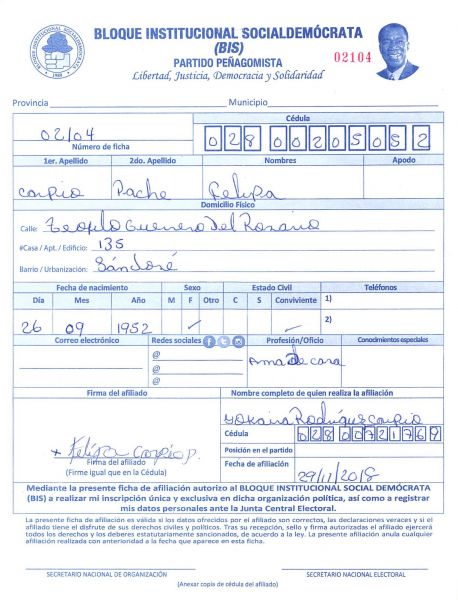 BLOQUE INSTITUCIONAL SOCIALDEMÓCRATA
(BIS)
PARTIDO PEÑAGOMISTA
Libertad, Justicia, Democracia y Solidaridad
02104
BLOQUE INSTITUCIONAL SOCIALDEMOCRATA
Provincia Municipio
02104 Cédula
Número de ficha 028 0020505 2
1er. Apellido 2do. Apellido Nombres Apodo
Carpio Pache Felipa
Domicilio Físico
Calle: Teofilo Guerrero Del Rosario
#Casa / Apt. / Edificio: 135
Barrio / Urbanización: San José
Fecha de nacimiento Sexo Estado Civil Teléfonos
Día Mes Año M F Otro C S Conviviente 1)
26 09 1952 ✓ ✓ 2)
Correo electrónico Redes sociales Profesión/Oficio Conocimientos especiales
@ Ama de casa
@
@
Firma del afiliado Nombre completo de quien realiza la afiliación
Rodríguez Carpio
Cédula 028 0072176 7
+ Felipa Carpio P. Posición en el partido
Firma del afiliado Fecha de afiliación
(Firme igual que en la Cédula) 29/11/2018
Mediante la presente ficha de afiliación autorizo al BLOQUE INSTITUCIONAL SOCIAL DEMÓCRATA
(BIS) a realizar mi inscripción única y exclusiva en dicha organización política, así como a registrar
mis datos personales ante la Junta Central Electoral.
La presente ficha de afiliación es válida si los datos ofrecidos por el afiliado son correctos, las declaraciones veraces y si el
afiliado tiene el disfrute de sus derechos civiles y políticos. Tras su recepción, sello y firma autorizados el afiliado ejercerá
todos los derechos y los deberes estatutariamente sancionados, de acuerdo a la ley. La presente afiliación anula cualquier
afiliación realizada con anterioridad a la fecha que aparece en esta ficha.
SECRETARIO NACIONAL DE ORGANIZACIÓN SECRETARIO NACIONAL ELECTORAL
(Anexar copia de cédula del afiliado)